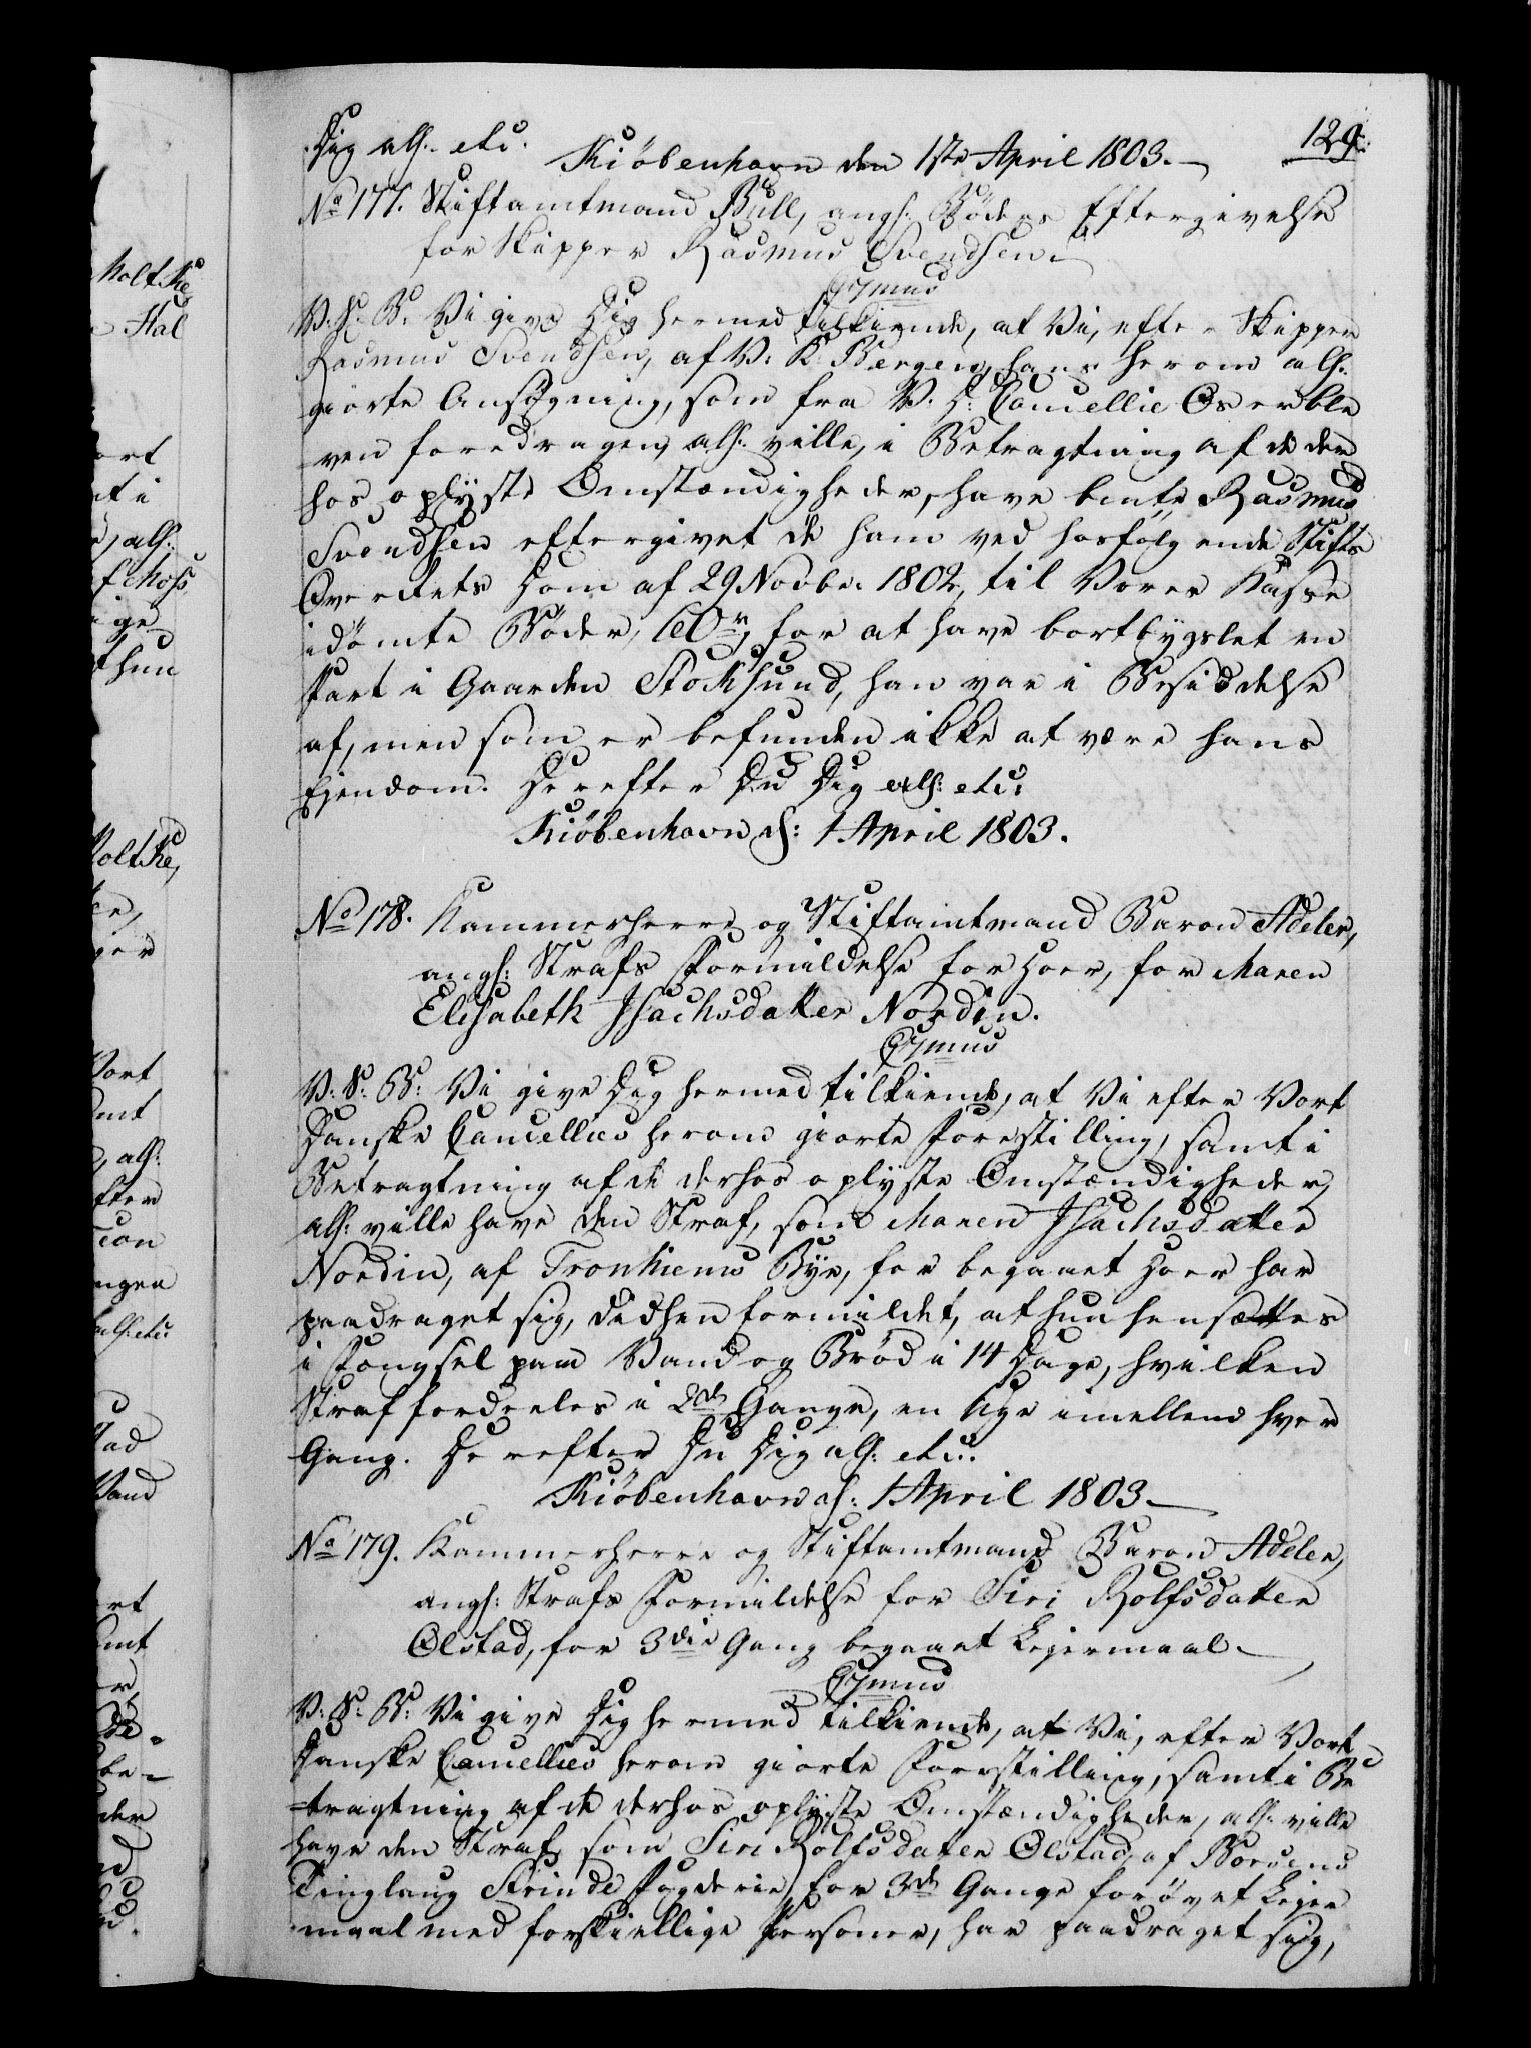 Dig alh. etc.
129.
Kiöbenhavn den 1ste April 1803.
No 177. Stiftamtmand Bull, angh: Böders Eftergivelse
for Skipper Rasmus Svendsen.
V. S. B. Vi give Dig hermed tilkiende, at Vi, efter Skipper
Rasmus Svendsen, af V: K: Bergen, hans herom alh.
giorte Ansøgning, som fra V. D: Cancellie Os er ble
ven foredragen, alh. ville, i Betragtning af de der
hos oplyste Omstændigheder, have bemte Rasmus
Svendsen eftergivet de ham ved hosfölgende Stifts
Overrets Dom af 29 Novbr. 1802, til Vores Kasse
idömte Böder, for at have bortbygslet en
Part i Gaarden Stoksund, han var i Besiddelse
af, men som er befunden ikke at være hans
Ejendom. Derefter Du Dig alh: etc:
Kiöbenhavn d: 1 April 1803.
No 178. Kammerherre og Stiftamtmand Baron Adeler,
angh: Strafs Formildelse for Hoer, for Maren
Elisabeth Isachsdatter Nordin.
V. S. B: Vi give Dig hermed tilkiende, at Vi efter Vort
Danske Cancellies herom giorte Forestilling, samt i
Betragtning af de derhos oplyste Omstændigheder,
alh: ville have den Straf, som Maren Isachsdatter
Nordin, af Tronhiems Bye, for begaaet Hoer har
paadraget sig, didhen formildet, at hun hensættes
i Fængsel paa Vand og Bröd i 14 Dage, hvilken
Straf fordeeles i 2de Gange, en Uge imellem hver
Gang. Derefter Du Dig alh: etc.
Kiöbenhavn d: 1 April 1803.
No 179. Kammerherre og Stiftamtmand Baron Adeler,
angh: Strafs Formildelse for Siri Rolfsdatter
Ølstad, for 3die Gang begaaet Lejermaal.
V. S. B: Vi give Dig hermed tilkiende, at Vi, efter Vort
Danske Cancellies herom giorte Forestilling, samt i Be
=tragtning af de derhos oplyste Omstændigheder, alh. ville
have den Straf, som Siri Rolfsdatter Ølstad, af Börsens
Tinglaug Strinde Fogderie, for 3de Gange forövet Lejer
maal med forskiellige Personer, har paadraget sig,